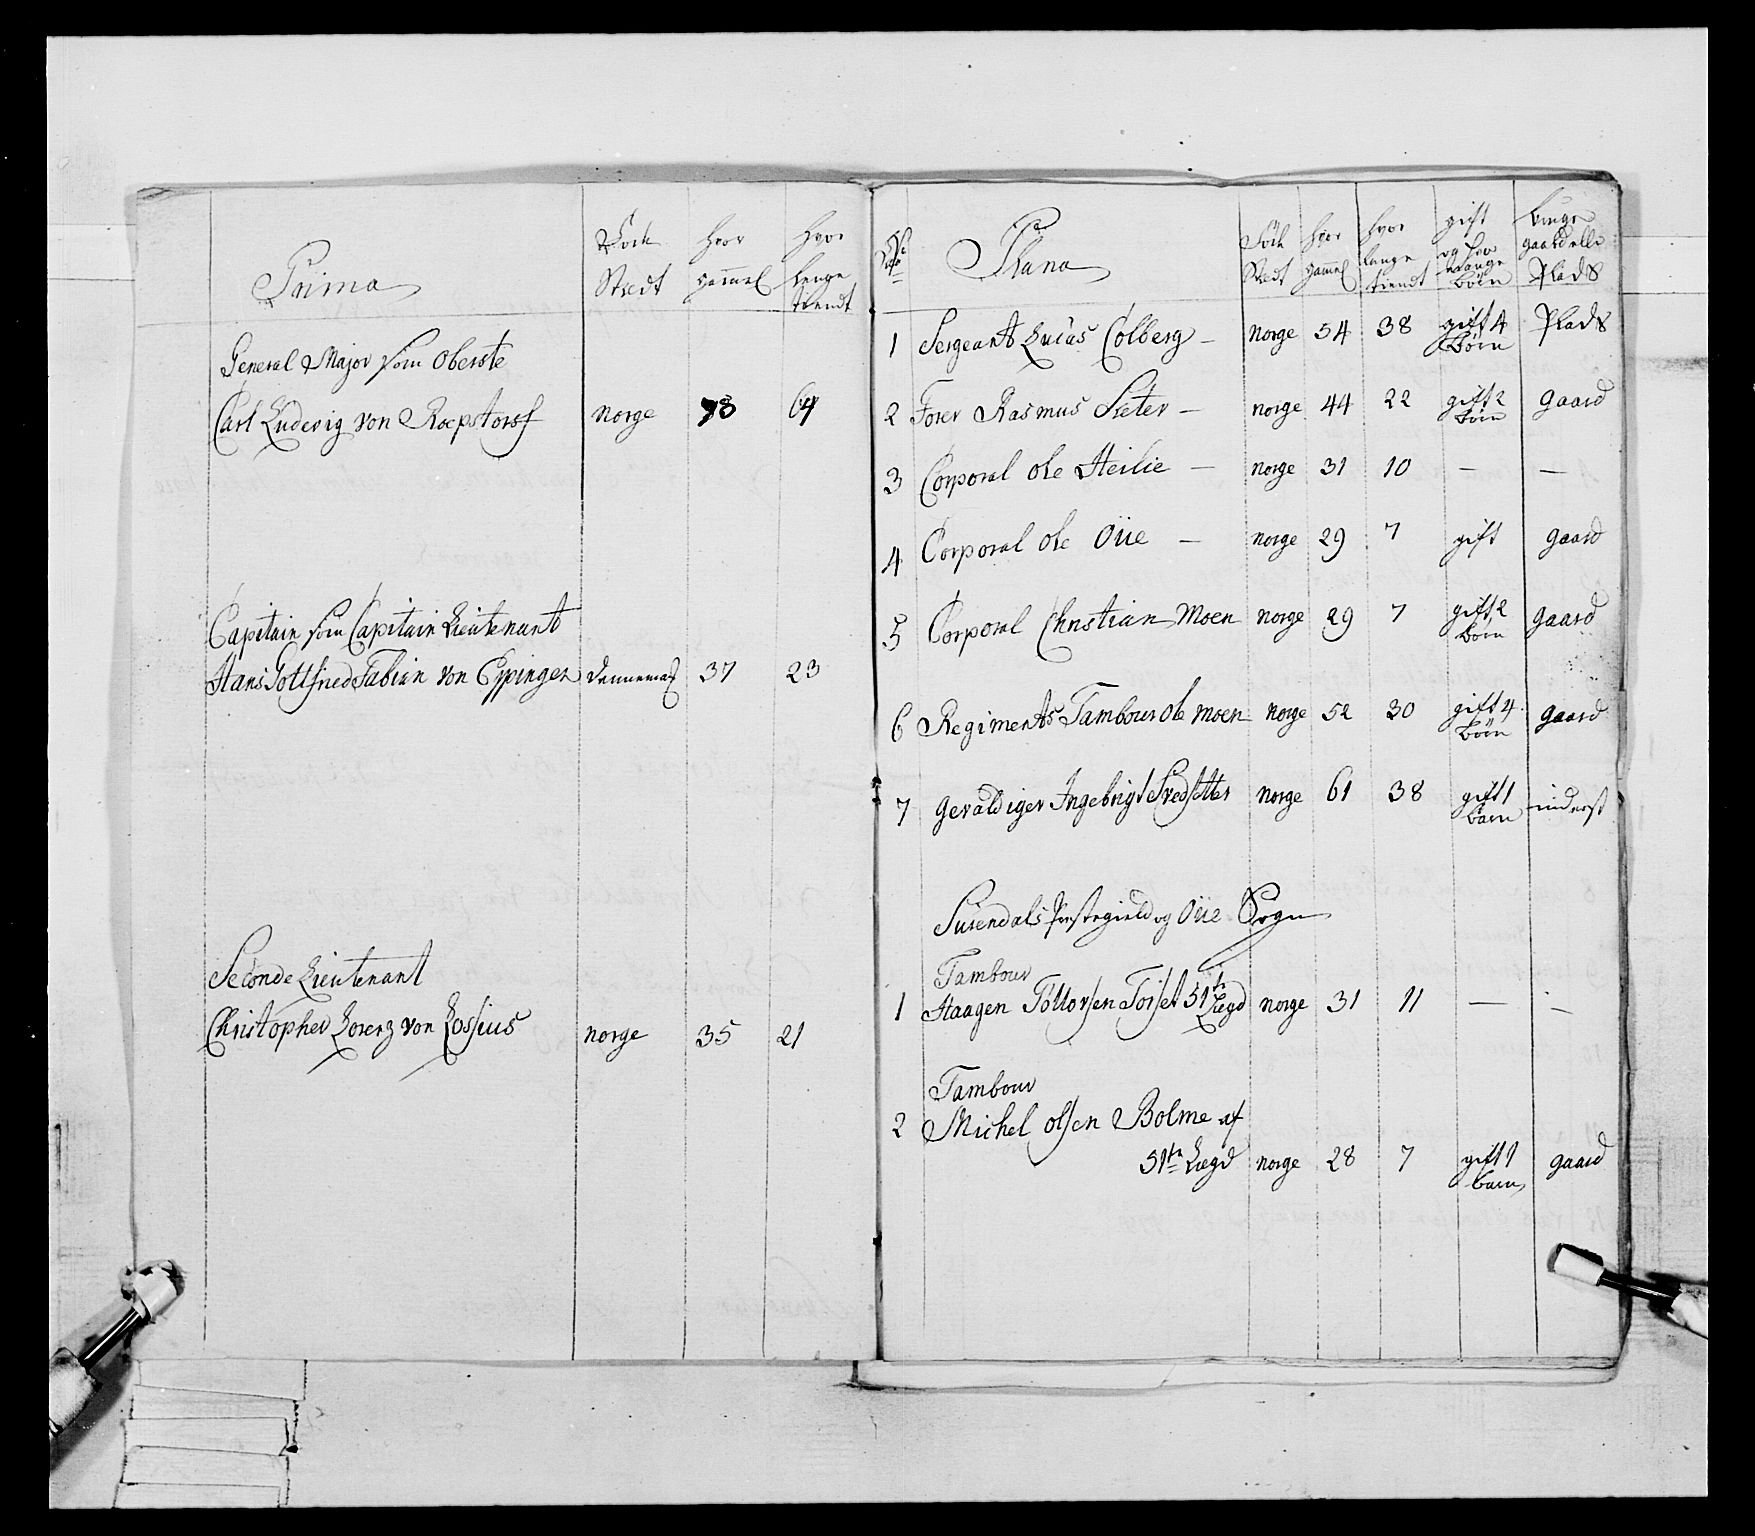 Prima
Föde
Stedt
Hvor
gammel
Hvor
lenge
tiendt
General Major som Oberste
Carl Ludevig von Roepstorof norge 78 64
Capitain som Capitain Lieutenant
Hans Gottfried Fabian von Eppingen dannemarck 37 23
Seconde Lieutenant
Christopher Lorenz von Lossius norge 35 21
Plana
Föde
Stedt
hvor
gammel
hvor
lange
tiendt
gift
og hvor
mange
börn
bruger
gaard eller
Plads
1 Sergeant Lucas Colberg – norge 54 38 gift 4 Plads
börn
2 Forer Rasmus Sæter – norge 44 22 gift 2 gaard
börn
3 Corporal Ole Heilie – norge 31 10 – –
4 Corporal Ole Öüe – norge 29 7 gift gaard
5 Corporal Christian Moen norge 29 7 gift 2 gaard
börn
6 Regiments Tambour Ole Moen norge 52 30 gift 4 gaard
börn
7 Gevaldiger Ingebrigt Svedsetter norge 61 38 gift 1 inderst
barn
Surendals Prestegield og Öüe Sogn
Tambour
1 Haagen Tollorsen Toiset 51te Lægd norge 31 11 – –
Tambour
2 Michel Olsen Bolme af
51te Lægd norge 28 7 gift 1 gaard
barn